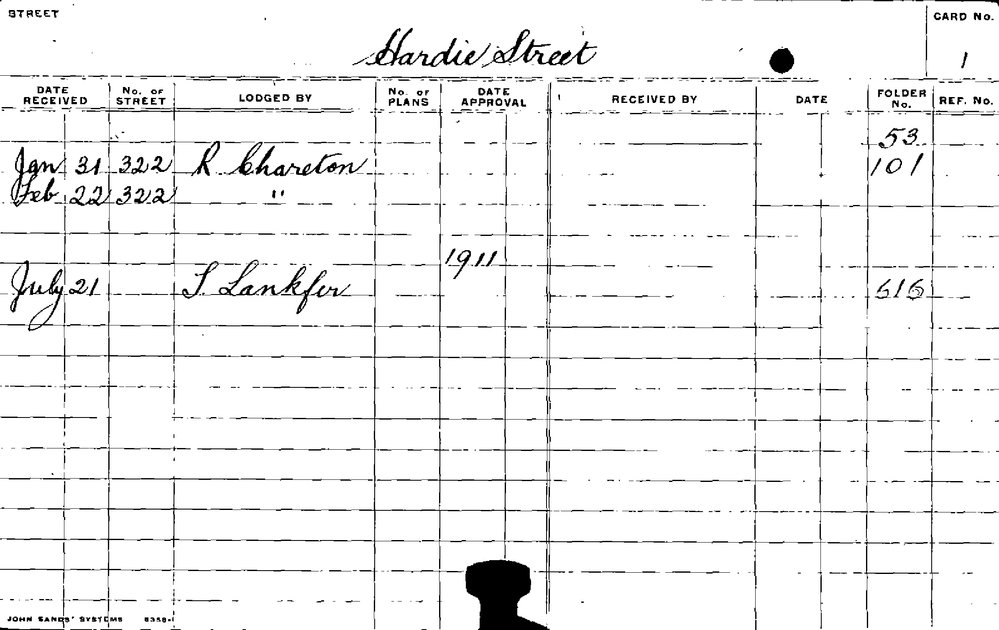 STREET
CARD No.
Hardie Street
1
DATE RECEIVED No. OF STREET LODGED BY No. OF PLANS DATE APPROVAL RECEIVED BY DATE FOLDER No. REF. No.
53
Jan 31 322 R Chareton 101
Feb 22 322 "
1911
July 21 T. Lankfer 616
JOHN SANDS' SYSTEMS 8358-